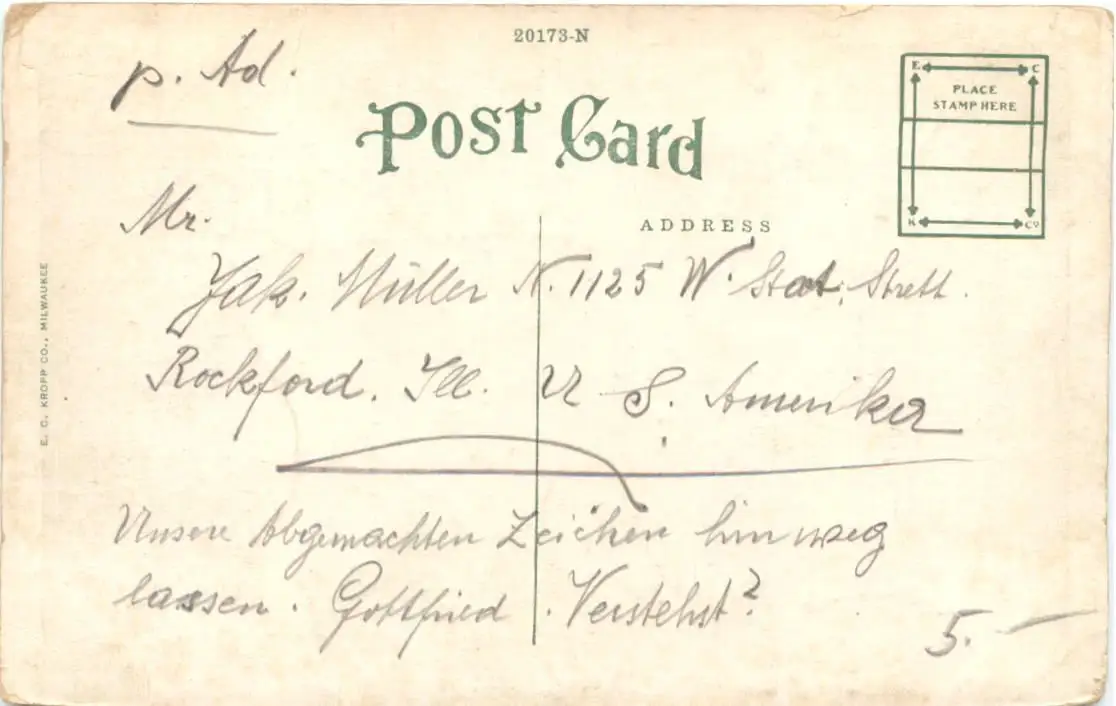 20173-N
p. Ad.
E C
PLACE
STAMP HERE
K Co
Post Card
ADDRESS
Mr.
Jak. Müller N. 1125 W. Stat. Strett.
Rockford. Ill. U S. Amerika
Unsere Abgemachten Zeichen hinweg
lassen. Gottfried. Verstehst?
5.-
E. C. KROPP CO., MILWAUKEE